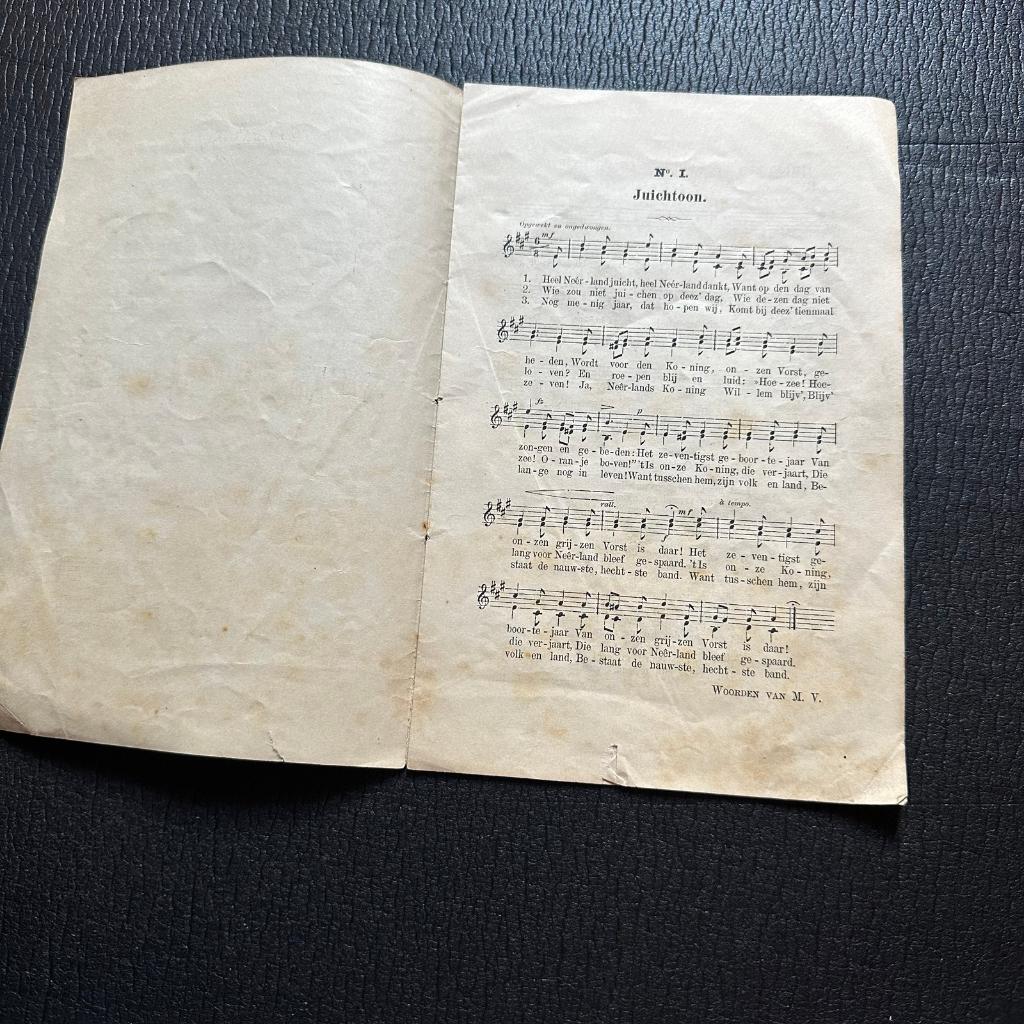 Nº. I.
Juichtoon.
Opgewekt en ongedwongen.
mf
6/8
1. Heel Neêr-land juicht, heel Neêr-land dankt, Want op den dag van
2. Wie zou niet jui-chen op deez' dag, Wie de-zen dag niet
3. Nog me-nig jaar, dat ho-pen wij, Komt bij deez' tienmaal
he-den, Wordt voor den Ko-ning, on-zen Vorst, ge-
lo-ven? En roe-pen blij en luid: »Hoe-zee! Hoe-
ze-ven! Ja, Neêr-lands Ko-ning Wil-lem blijv', Blijv'
fz p
zon-gen en ge-be-den: Het ze-ven-tigst ge-boor-te-jaar Van
zee! O-ran-je bo-ven!" 't Is on-ze Ko-ning, die ver-jaart, Die
lan-ge nog in leven! Want tusschen hem, zijn volk en land, Be-
rall. mf à tempo.
f
on-zen grij-zen Vorst is daar! Het ze-ven-tigst ge-
lang voor Neêr-land bleef ge-spaard. 't Is on-ze Ko-ning,
staat de nauw-ste, hecht-ste band. Want tus-schen hem, zijn
boor-te-jaar Van on-zen grij-zen Vorst is daar!
die ver-jaart, Die lang voor Neêr-land bleef ge-spaard.
volk en land, Be-staat de nauw-ste, hecht-ste band.
WOORDEN VAN M. V.